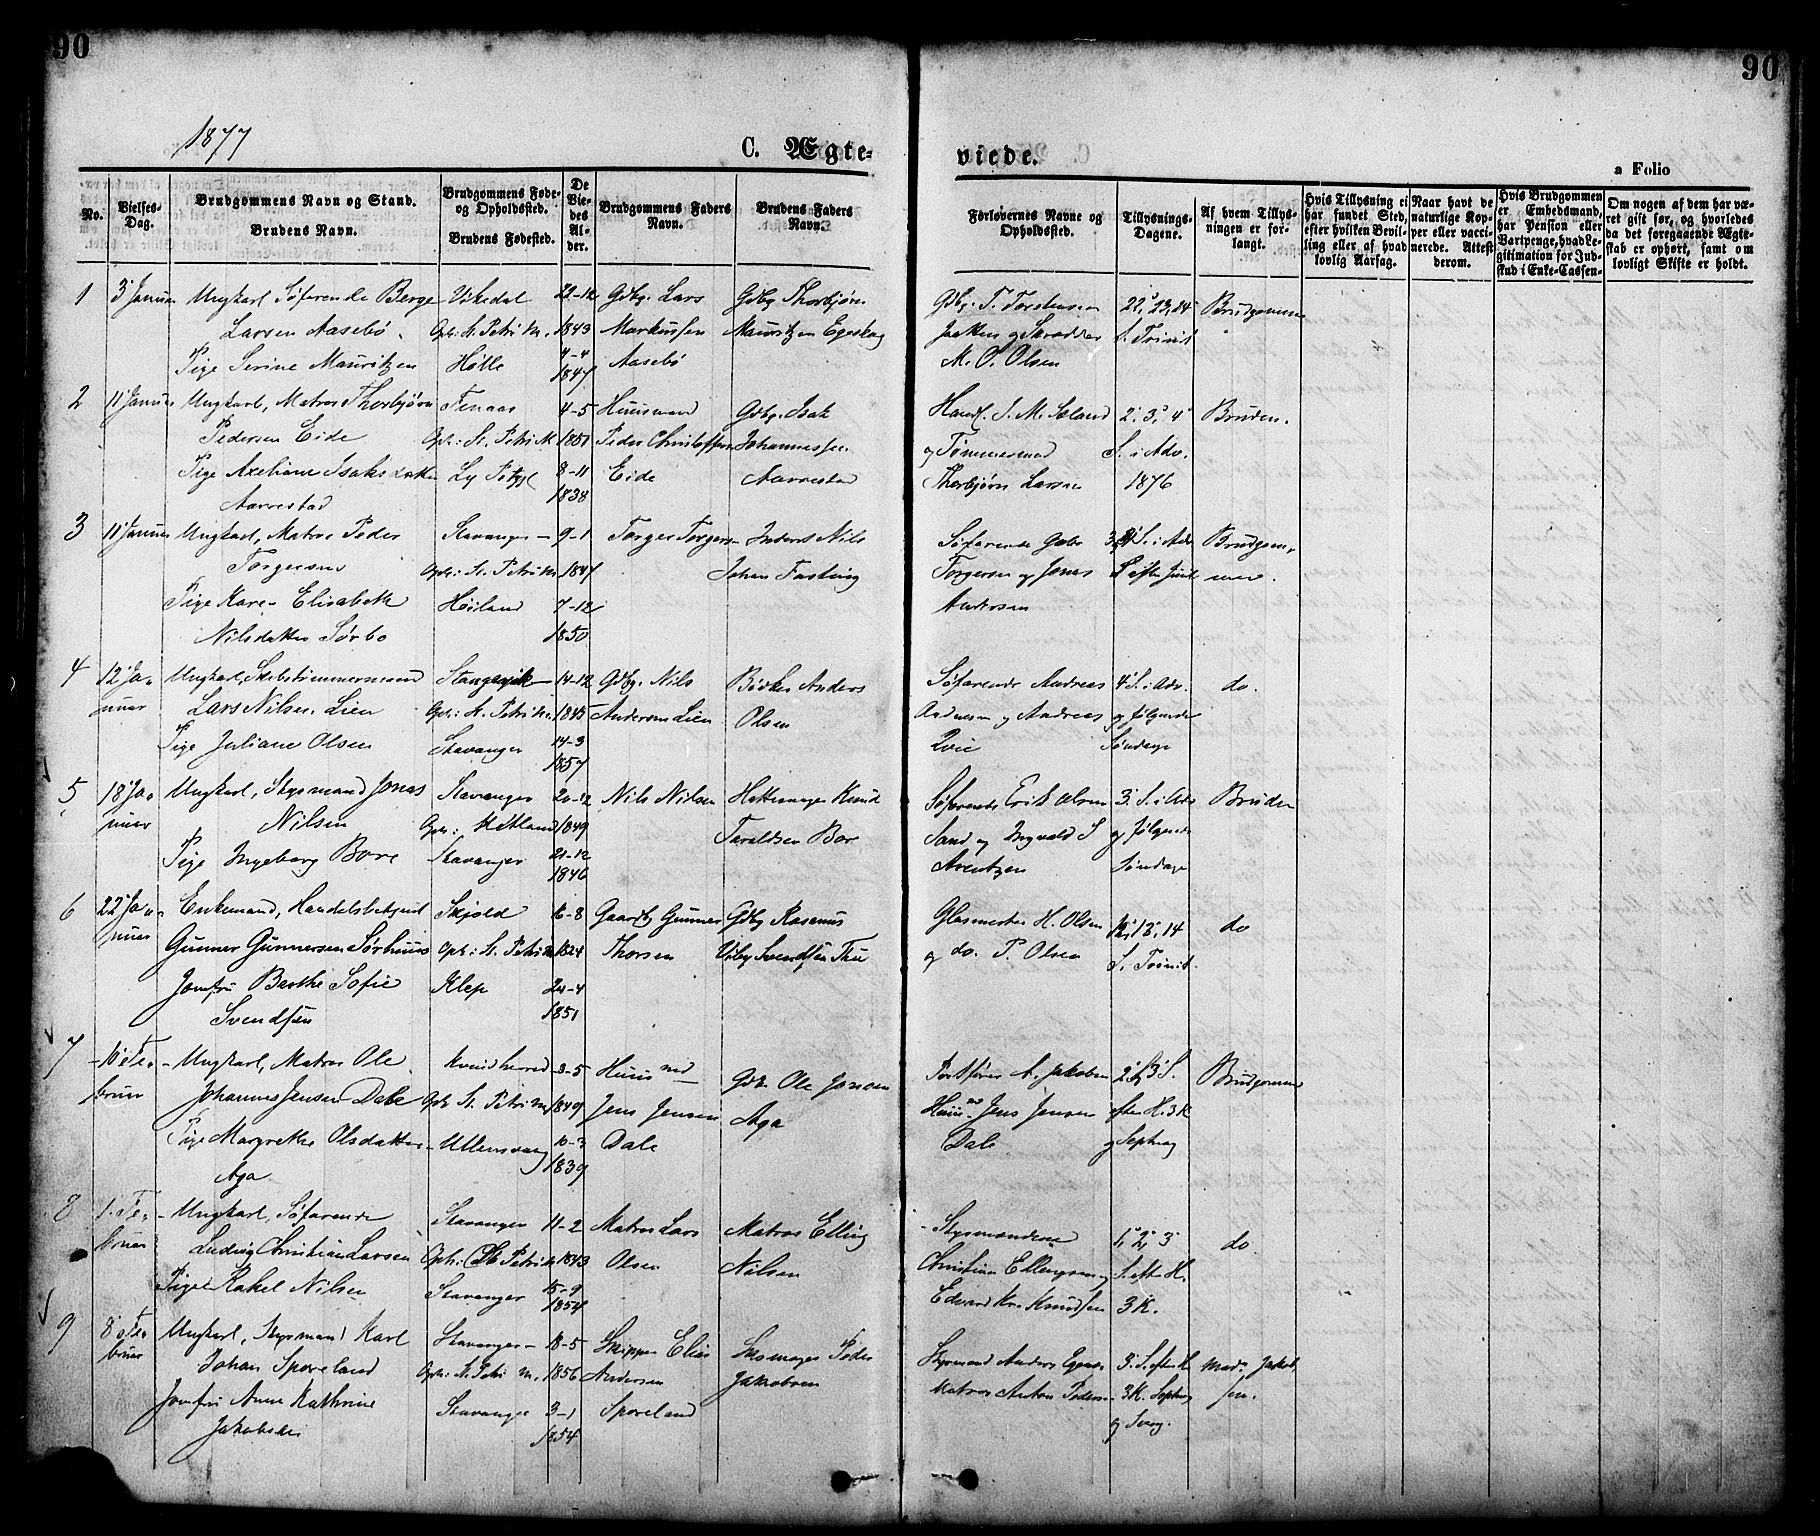 90
90
1877
C. Ægte-
viede.
a Folio
No.
Vielses-Dag.
Brudgommens Navn og Stand.
Brudens Navn.
Brudgommens Føde- og Opholdssted.
Brudens Fødested.
De Viedes Alder.
Brudgommens Faders Navn.
Brudens Faders Navn.
Forlovernes Navne og Opholdssted.
Tillysnings-Dagene.
Af hvem Tillysningen er forlangt.
Hvis Tillysning ei har fundet Sted, efter hvilken Bevilling eller af hvad lovlig Aarsag.
Naar havt de naturlige Kopper eller vaccinerede. Attesterdom.
Hvis Brudgommen er Embedsmand, har Pension eller Vartpenge, hvad Legitimation for Indskud i Enke-Cassen.
Om nogen af dem har været gift før, og hvorledes da det foregaaende Ægteskab er ophørt, samt om lovligt Skifte er holdt.
1 3' Januar Ungkarl Søfarende Berge Vikedal 22-12 Gdbg. Lars Gdbg Thorbjørn Gdbg. T. Torstensen 22', 23, 24' Brudgommen
Larsen Aasebø. Oph: St. Petri M. 1843 Markussen Mauritzen Egeskog Jaatten og Skrædder S. Trinit
Pige Serine Mauritzen Hølle 4-4 1847 Aasebø M. O. Olsen
2 11' Januar Ungkarl, Matros Thorbjørn 4-5 Huusmand Gdbg. Isak Handl. S. M. Aeland 2', 3', 4' Bruden.
Pedersen Eide Oph: St. Petri M. 1851 Peder Christoffersen Johannessen og Tømmermand S. i Adv.
Pige Axeliane Isaksdatter 8-11 Eide Aarrestad Thorbjørn Larsen 1876
Aarrestad 1838
3 11' Januar Ungkarl, Matros Peder Stavanger 9-1 Torger Torgersen Inderst Nils Søfarende Gabr. S. i Adv. Brudgom-
Torgersen Oph: St. Petri M. 1847 Johan Fasting Torgersen og Jonas men.
Pige Kare- Elisabeth Høiland 7-12 Andersen
Nilsdatter Sørbo 1850
4 12' Ja- Ungkarl, Skibstømmermand Stangvik 14-12 Gdbg. Nils Bødker Anders Søfarende Andreas 4' S. i Adv. do.
nuar Lars Nilsen Lien Oph: St. Petri M. 1845 Andersen Lien Olsen og Andreas og følgende
Pige Juliane Olsen Stavanger 14-3 Qvie Søndage
1857
5 18' Ja- Ungkarl, Styrmand Jonas Stavanger 20-12 Nils Nilsen Hattemager Knud Søfarende Erik Olsen 3' S. i Adv. Bruden
nuar Nilsen Oph: Hetland 1849 Taraldsen Bore Sand og Ingvald S. og følgende
Pige Ingeborg Bore Stavanger 21-12 Arentzen Søndage
1846
6 22' Ja- Enkemand, Handelsbetjent Skjold 6-8 Gaardbg Gunner Gdbg Rasmus Glasmester H. Olsen 12', 13', 14 do
nuar Gunner Gunnersen Sørhuus Oph: St. Petri M. 1824 Thorsen Svendsen Thu og do. P. Olsen S. Trinit.
Jomfru Berthe Sofie Klep 24-4
Svendsen 1851
7 Fe- Ungkarl, Matros Ole Kvindherred 3-5 Huusmd Gdb. Ole Jonsen A. Jakobsen 2' og 3' S. Brudgommen
bruar Johannes Jensen Dale Oph St. Petri M 1849 Jens Jensen Aga Huusmd Jens Jensen efter H. 3 K
Pige Margrethe Olsdatter Ullensvang 10-3 Dale Dale og Septuag
Aga 1839
8 1. Fe- Ungkarl, Søfarende Stavanger 11-2 Matros Lars Matros Elling Styrmændene 1', 2', 3' do.
bruar Ludvig Christian Larsen Oph: St. Petri M. 1843 Olsen Nilsen Christian Ellingsen og S. efter H.
Pige Rakel Nilsen Stavanger 15-9 Edvard Kr. Knudsen 3 K.
1854
9 8' Fe- Ungkarl, Styrmand Karl Stavanger 18-5 Skipper Elias Skomager Peder Styrmand Anders Egenes 3' S. efter H. Mad. Jakob-
bruar Johan Sporeland Oph: St. Petri M. 1856 Andersen Jakobsen Matros Anton Pedersen 3 K. Septuag sen.
Jomfru Anne Kathrine Stavanger 3-1 Sporeland
Jakobsen 1854